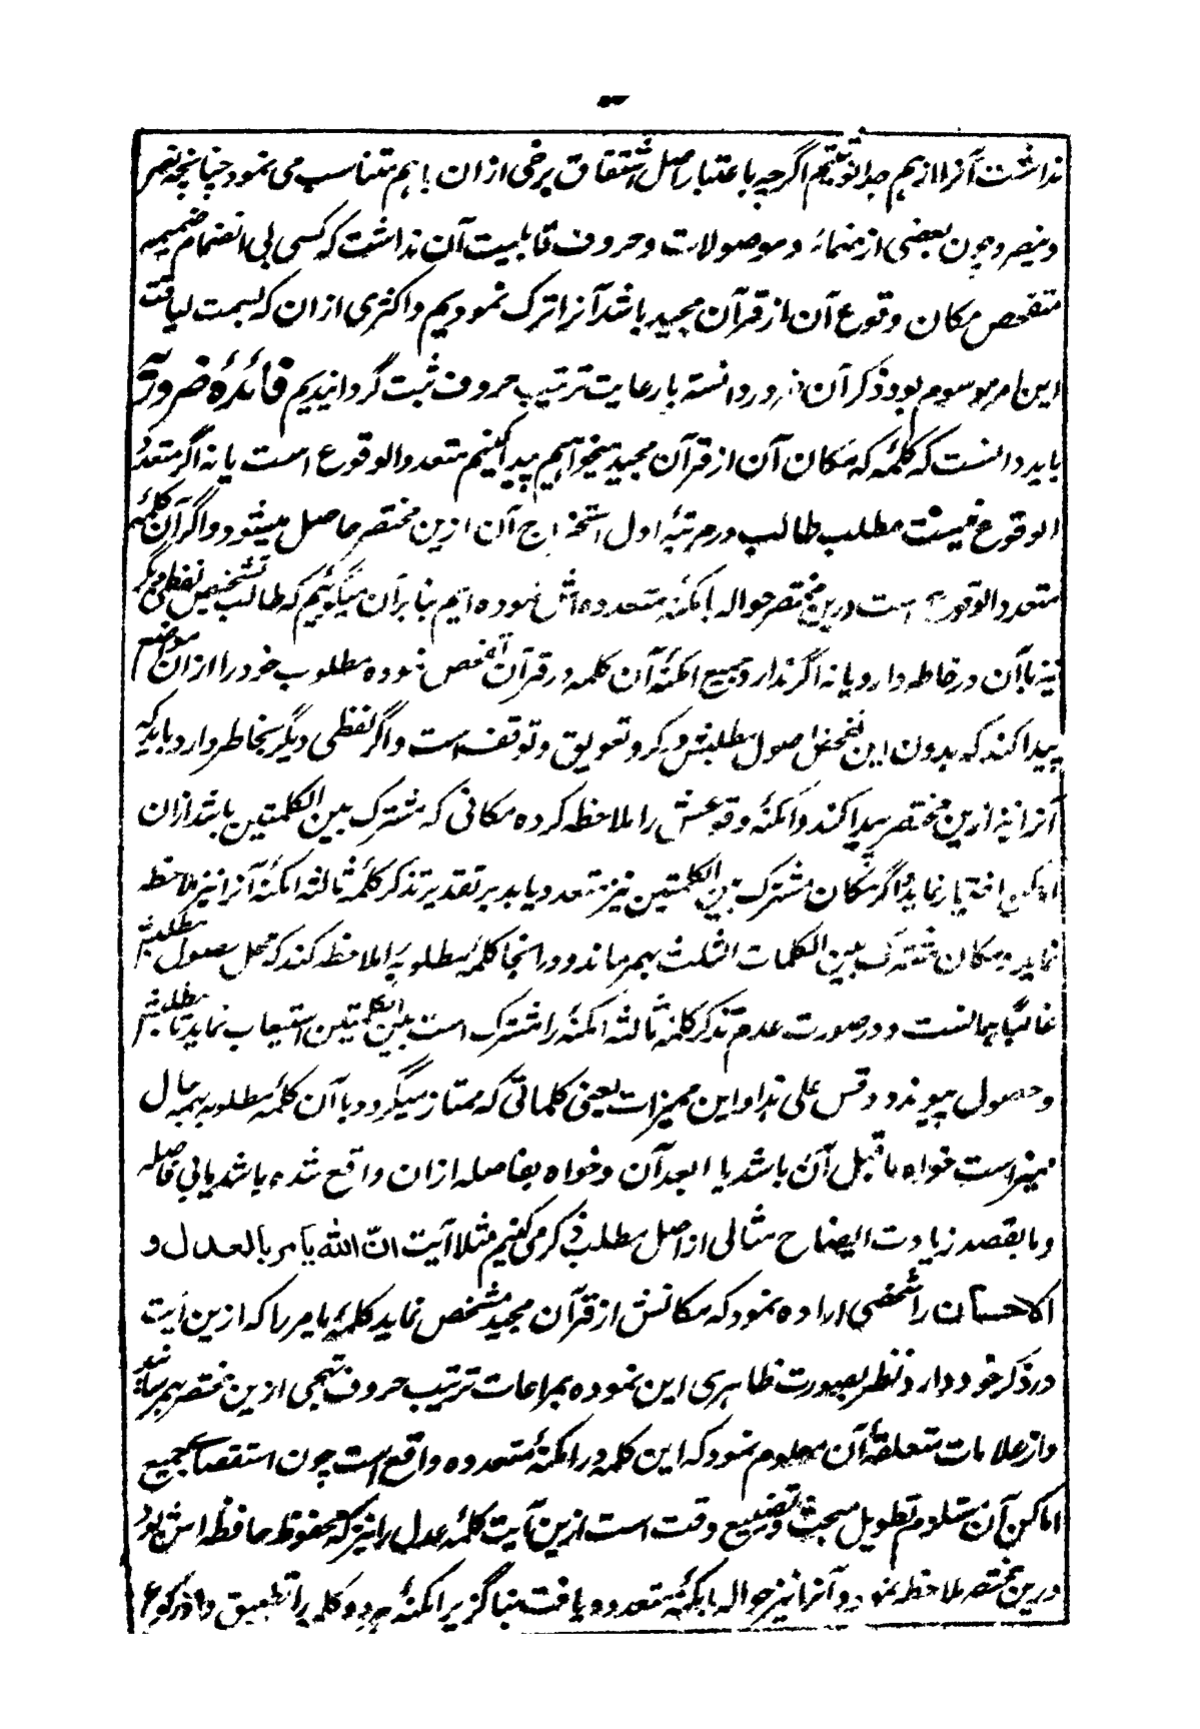 نداشت آنرا از هم جدا نوشتیم اگرچه باعتبار اصل اشتقاق برخی ازان با هم متناسب می نمود چنانچه نصر
و ینصر و چون بعضی از ضمائر و موصولات و حروف قابلیت آن نداشت که کسی بی انضمام ضمیمه
متفحص مکان وقوع آن از قرآن مجید باشد آنرا ترک نمودیم و اکثری ازان که بسمت لیاقت
این امر موسوم بود ذکر آن ضرور دانسته با رعایت ترتیب حروف ثبت گردانیدیم فائدهٔ ضروریه
باید دانست که کلمهٔ که مکان آن از قرآن مجید میخواهیم پیدا کنیم متعدد الوقوع است یا نه اگر متعدد
الوقوع نیست مطلب طالب در مرتبهٔ اول استخراج آن ازین مختصر حاصل میشود و اگر آن کلمه
متعدد الوقوع است درین مختصر حواله بامکنهٔ متعدده اش نموده ایم بنابرآن میگوئیم که طالب تشخیص لفظی دیگر
نیز باآن در خاطر دارد یا نه اگر ندارد جمیع امکنهٔ آن کلمه در قرآن تفحص نموده مطلوب خود را ازان موضع
پیدا کند که بدون این تفحص حصول مطلبش در گرو تعویق و توقف است و اگر لفظی دیگر بخاطر دارد باید که
آنرا نیز ازین مختصر پیدا کند و امکنهٔ وقوعش را ملاحظه کرده مکانی که مشترک بین الکلمتین باشد ازان
اماکن اختیار نماید و اگر مکان مشترک بین الکلمتین نیز متعدد یابد بر تقدیر تذکر کلمهٔ ثالثه امکنهٔ آنرا نیز ملاحظه
نماید و مکان مشترک بین الکلمات الثلث بهم رساند و در انجا کلمهٔ مطلوبه را ملاحظه کند که محل حصول مطلبش
غالبًا همانست و در صورت عدم تذکر کلمهٔ ثالثه امکنهٔ را که مشترک است بین الکلمتین استیعاب نماید تا مطلبش
بحصول پیوندد و قس علی هذا و این ممیزات یعنی کلماتی که ممتاز میگردد باآن کلمهٔ مطلوبه بهمه حال
ممیز است خواه ماقبل آن باشد یا مابعد آن و خواه بفاصله ازان واقع شده باشد یا بی فاصله
و ما بقصد زیادت ایضاح مثالی از اصل مطلب ذکر می کنیم مثلا آیت انّ الله یأمر بالعدل و
الاحسان را شخصی اراده نمود که مکانش از قرآن مجید مشخص نماید کلمهٔ یامر را که ازین آیت
در ذکر خود دارد نظر بصورت ظاهری این نموده بمراعات ترتیب حروف تهجی ازین مختصر بهم رسانید
و از علامات متعلقهٔ آن معلوم نمود که این کلمه در امکنهٔ متعدده واقع است چون استقصاء جمیع
اماکن آن مستلزم تطویل مبحث و تضییع وقت است ازین آیت کلمهٔ عدل را نیز که محفوظ حافظه اش بود
درین مختصر ملاحظه نمود و آنرا نیز حواله بامکنهٔ متعدده یافت بناگزیر امکنهٔ هر دو کلمه را تطبیق داد رکوع